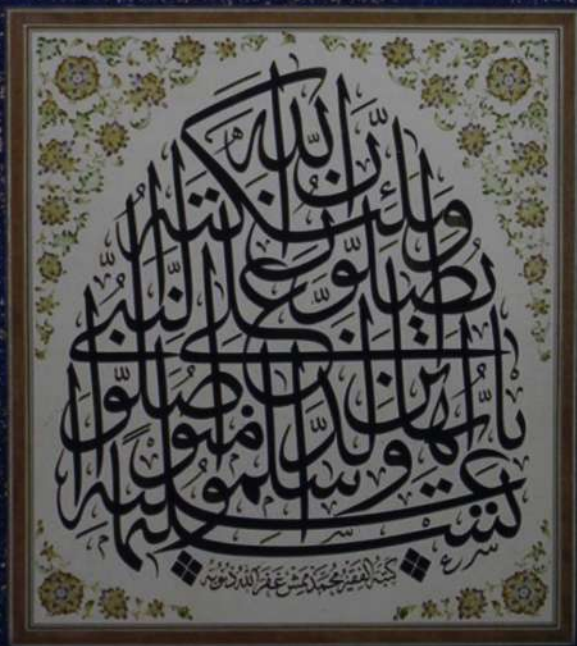 إن الله وملائكته
يصلون على النبي
يا أيها الذين آمنوا صلوا
عليه وسلموا تسليما
كتبه الفقير محمد غفر الله ذنوبه